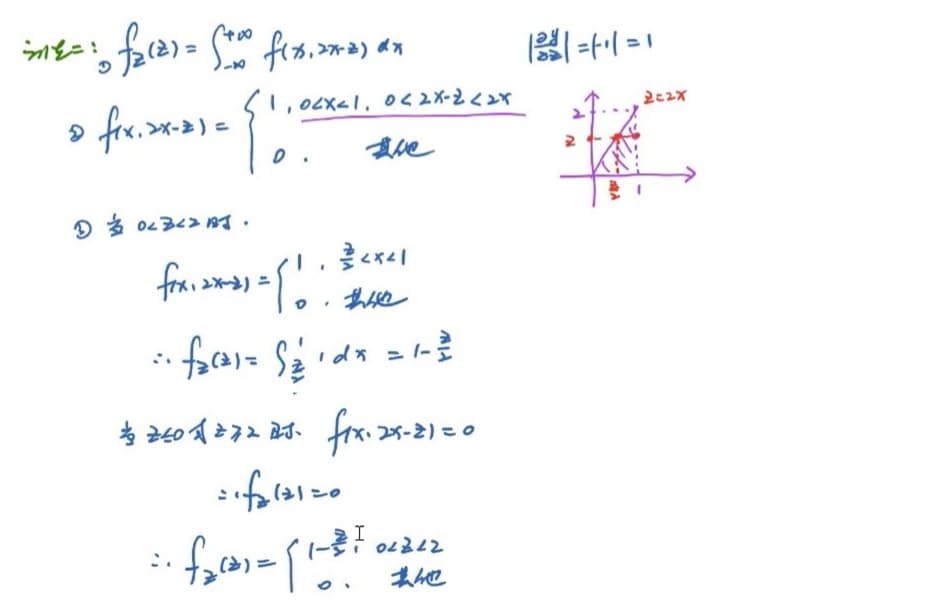 法二: ① f_Z(z) = ∫_{-∞}^{+∞} f(x, 2x-z) dx
|∂y/∂z| = |-1| = 1
② f(x, 2x-z) = { 1, 0<x<1, 0<2x-z<2x
0. 其他
z=2x
2
z
z/2 1
① 当 0<z<2 时.
f(x, 2x-z) = { 1, z/2<x<1
0. 其他
∴ f_Z(z) = ∫_{z/2}^{1} 1 dx = 1 - z/2
当 z≤0 或 z≥2 时. f(x, 2x-z) = 0
∴ f_Z(z) = 0
∴ f_Z(z) = { 1 - z/2, 0<z<2
0. 其他